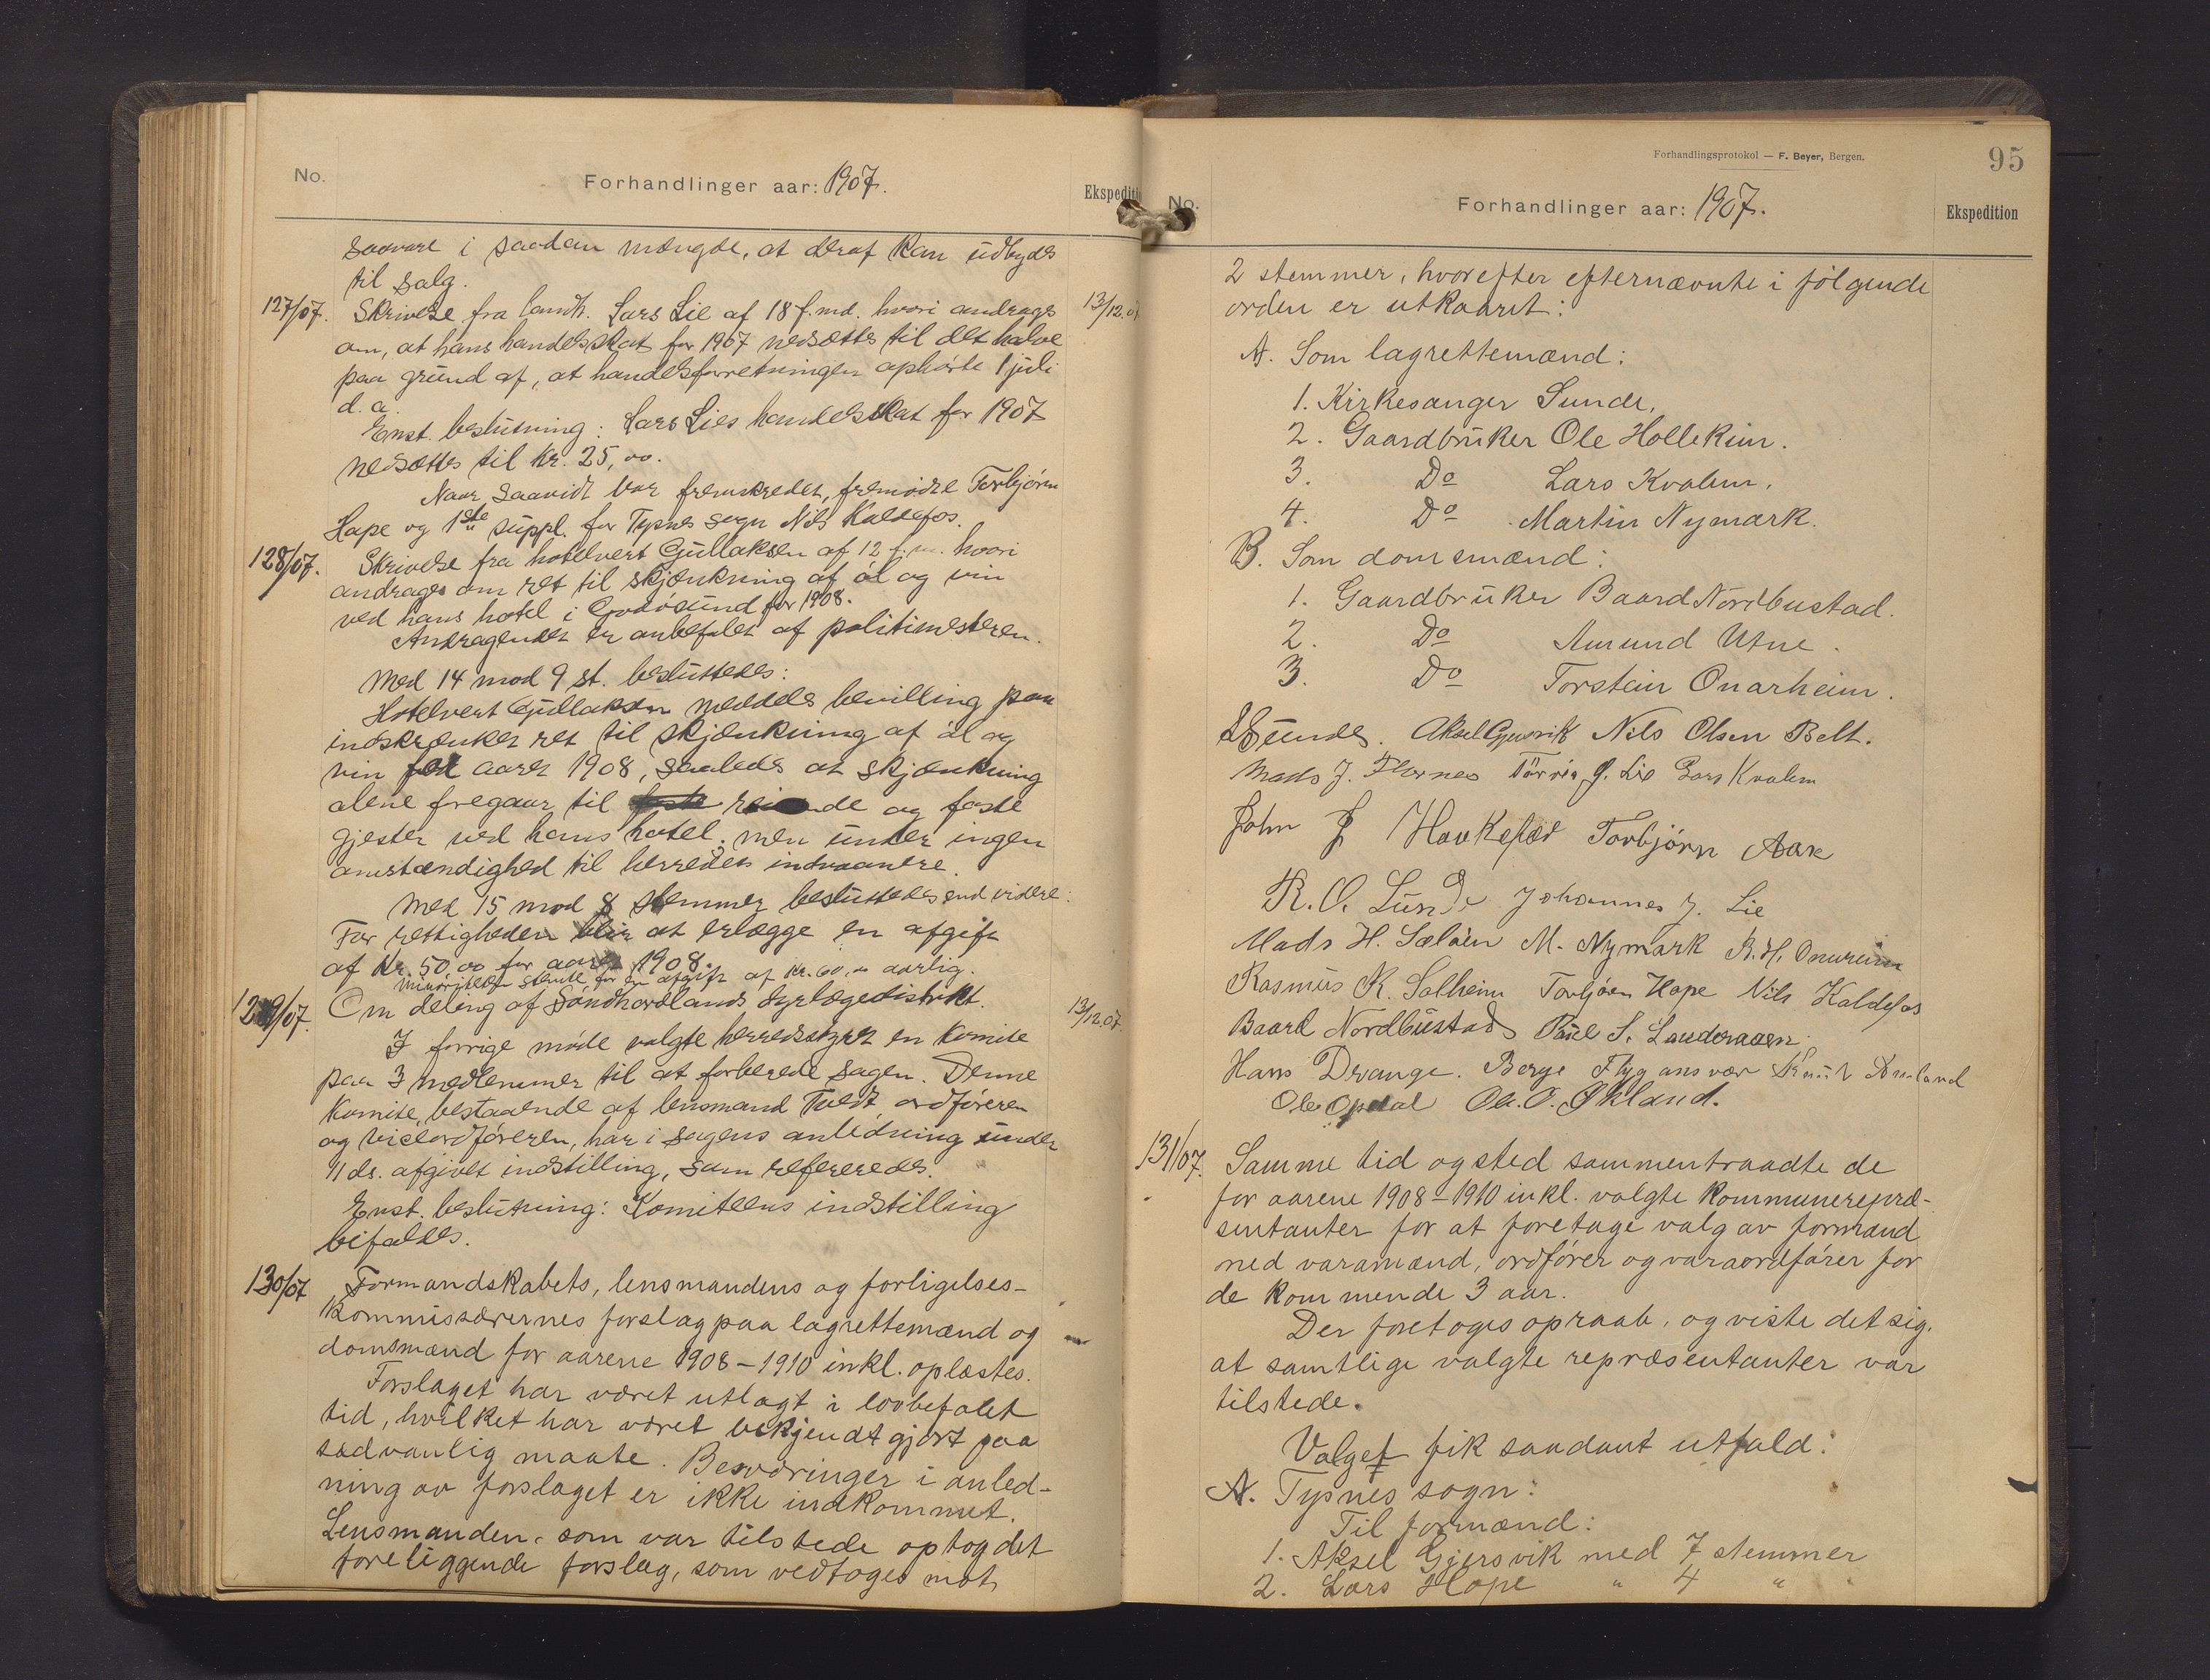 No.
Forhandlinger aar: 1907.
saavare i saadan mængde, at deraf kan udbydes
til salg.
127/07. Skrivelse fra landh. Lars Lie af 18 f.md. hvori andrages
13/12.07
om, at hans handelsskat for 1907 nedsættes til det halve
paa grund af, at handelsforretningen ophørte 1 juli
d. a.
Enst. beslutning: Lars Lies handelsskat for 1907
nedsættes til kr. 25,00.
Naar saavidt var fremskredet, fremødte Torbjørn
Hope og 1ste suppl. for Tysnes sogn Nils Kaldefos.
128/07. Skrivelse fra hotelvert Gullaksen af 12 f.m. hvori
andrages om ret til skjænkning af øl og vin
ved hans hotel i Godøsund for 1908.
Andragendet er anbefalet af politimesteren.
Med 14 mod 9 st. besluttedes:
Hotelvert Gullaksen meddeles bevilling paa
indskrænket ret til skjænkning af øl og
vin for aaret 1908, saaledes at skjænkning
alene foregaar til reisende og faste
gjester ved hans hotel, men under ingen
omstændighed til herredets indvaanere.
Med 15 mod 8 stemmer besluttedes end videre:
For rettigheden blir at erlægge en afgift
af Kr. 50,00 for aaret 1908.
Minoriteten stemte for en afgift af kr. 60,00 aarlig.
129/07. Om deling af Søndhordlands dyrlægedistrikt.
13/12.07.
I forrige møde valgte herredsstyret en komite
paa 3 medlemmer til at forberede sagen. Denne
komite, bestaaende af lensmand Tvedt, ordføreren
og viceordføreren, har i sagens anledning under
11 ds. afgivet indstilling, som refereredes.
Enst. beslutning: Komiteens indstilling
bifaldes.
130/07 Formandskabets, lensmandens og forligelses-
kommissærernes forslag paa lagrettemænd og
domsmænd for aarene 1908 – 1910 inkl. oplæstes.
Forslaget har været utlagt i lovbefalet
tid, hvilket har været bekjendtgjort paa
sædvanlig maate. Besværinger i anled-
ning av forslaget er ikke indkommet.
Lensmanden, som var tilstede optog det
foreliggende forslag, som vedtoges mot
Forhandlingsprotokol — F. Beyer, Bergen.
95
No.
Forhandlinger aar: 1907.
Ekspedition
2 stemmer, hvorefter efternævnte i følgende
orden er utkaaret:
A. Som lagrettemænd:
1. Kirkesanger Sunde,
2. Gaardbruker Ole Hollekim.
3. Do Lars Kvalem.
4. Do Martin Nymark.
B. Som domsmænd:
1. Gaardbruker Baard Nordbustad.
2. Do Amund Utne.
3. Do Torstein Onarheim.
Sunde. Aksel Gjersvik Nils Olsen Belt.
Mads J. Flornes J. Lie Lars Kvalem
John J Haukefær Torbjørn Aar
R. O. Lunde Johannes J. Lie
Mads H. Sæløen M. Nymark R. H. Onareim
Rasmus R. Solheim Torbjørn Hope Nils Kaldefos
Baard Nordbustad Paul S. Landeraaen.
Hans Drange. Berge Flygansvær Knut Amland
Ole Opdal Ole. O. Økland.
131/07. Samme tid og sted sammentraadte de
for aarene 1908 – 1910 inkl. valgte kommunerepræ-
sentanter for at foretage valg av formænd
med varamænd, ordfører og varaordfører for
de kommende 3 aar.
Der foretoges opraab, og viste det sig,
at samtlige valgte repræsentanter var
tilstede.
Valget fik saadant utfald:
A. Tysnes sogn:
Til formænd:
1. Aksel Gjersvik med 7 stemmer
2. Lars Hope " 4 "